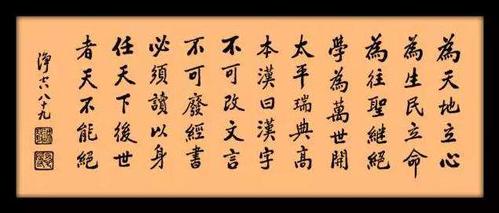 為天地立心
為生民立命
為往聖継絕
學為萬世開
太平瑞典高
本漢曰漢字
不可改文言
不可廢經書
必須讀以身
任天下後世
者天不能絕
淨空八十九